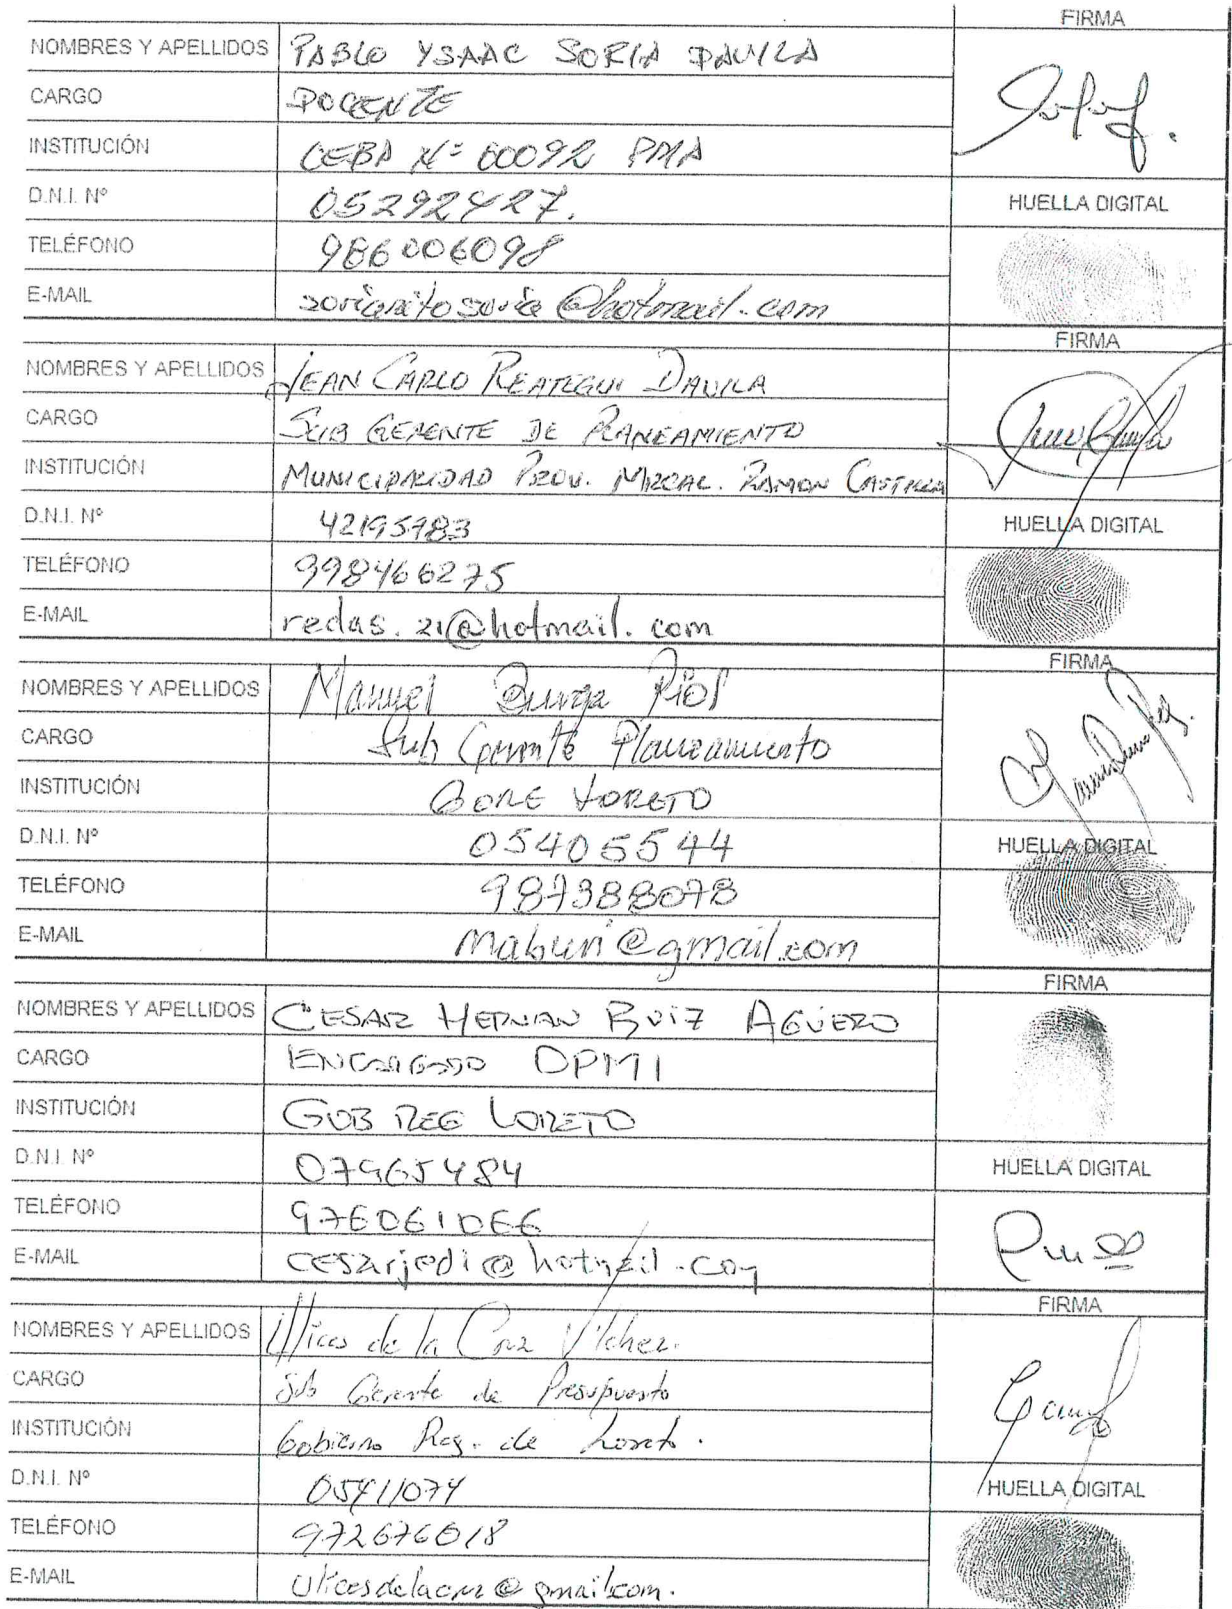 FIRMA
NOMBRES Y APELLIDOS PABLO YSAAC SORIA DAVILA
CARGO DOCENTE
INSTITUCIÓN CEBA Nº 60092 PMA
D.N.I. Nº 05292427.
HUELLA DIGITAL
TELÉFONO 986006098
E-MAIL sorianitosoria@hotmail.com
FIRMA
NOMBRES Y APELLIDOS JEAN CARLO REATEGUI DAVILA
CARGO SUB GERENTE DE PLANEAMIENTO
INSTITUCIÓN MUNICIPALIDAD PROV. MRCAL. RAMON CASTILLA
D.N.I. Nº 42195983
HUELLA DIGITAL
TELÉFONO 998466275
E-MAIL redas.21@hotmail.com
FIRMA
NOMBRES Y APELLIDOS Manuel Burga Rios
CARGO Sub Gerente Planeamiento
INSTITUCIÓN GORE LORETO
D.N.I. Nº 05405544
HUELLA DIGITAL
TELÉFONO 987388078
E-MAIL maburi@gmail.com
FIRMA
NOMBRES Y APELLIDOS CESAR HERNAN RUIZ AGÜERO
CARGO ENCARGADO OPMI
INSTITUCIÓN GOB REG LORETO
D.N.I. Nº 07965484
HUELLA DIGITAL
TELÉFONO 976061066
E-MAIL cesarjedi@hotmail.com
FIRMA
NOMBRES Y APELLIDOS Ulices de la Cruz Vilchez.
CARGO Sub Gerente de Presupuesto
INSTITUCIÓN Gobierno Reg. de Loreto.
D.N.I. Nº 05411074
HUELLA DIGITAL
TELÉFONO 972676018
E-MAIL Ulicesdelacruz@gmail.com.